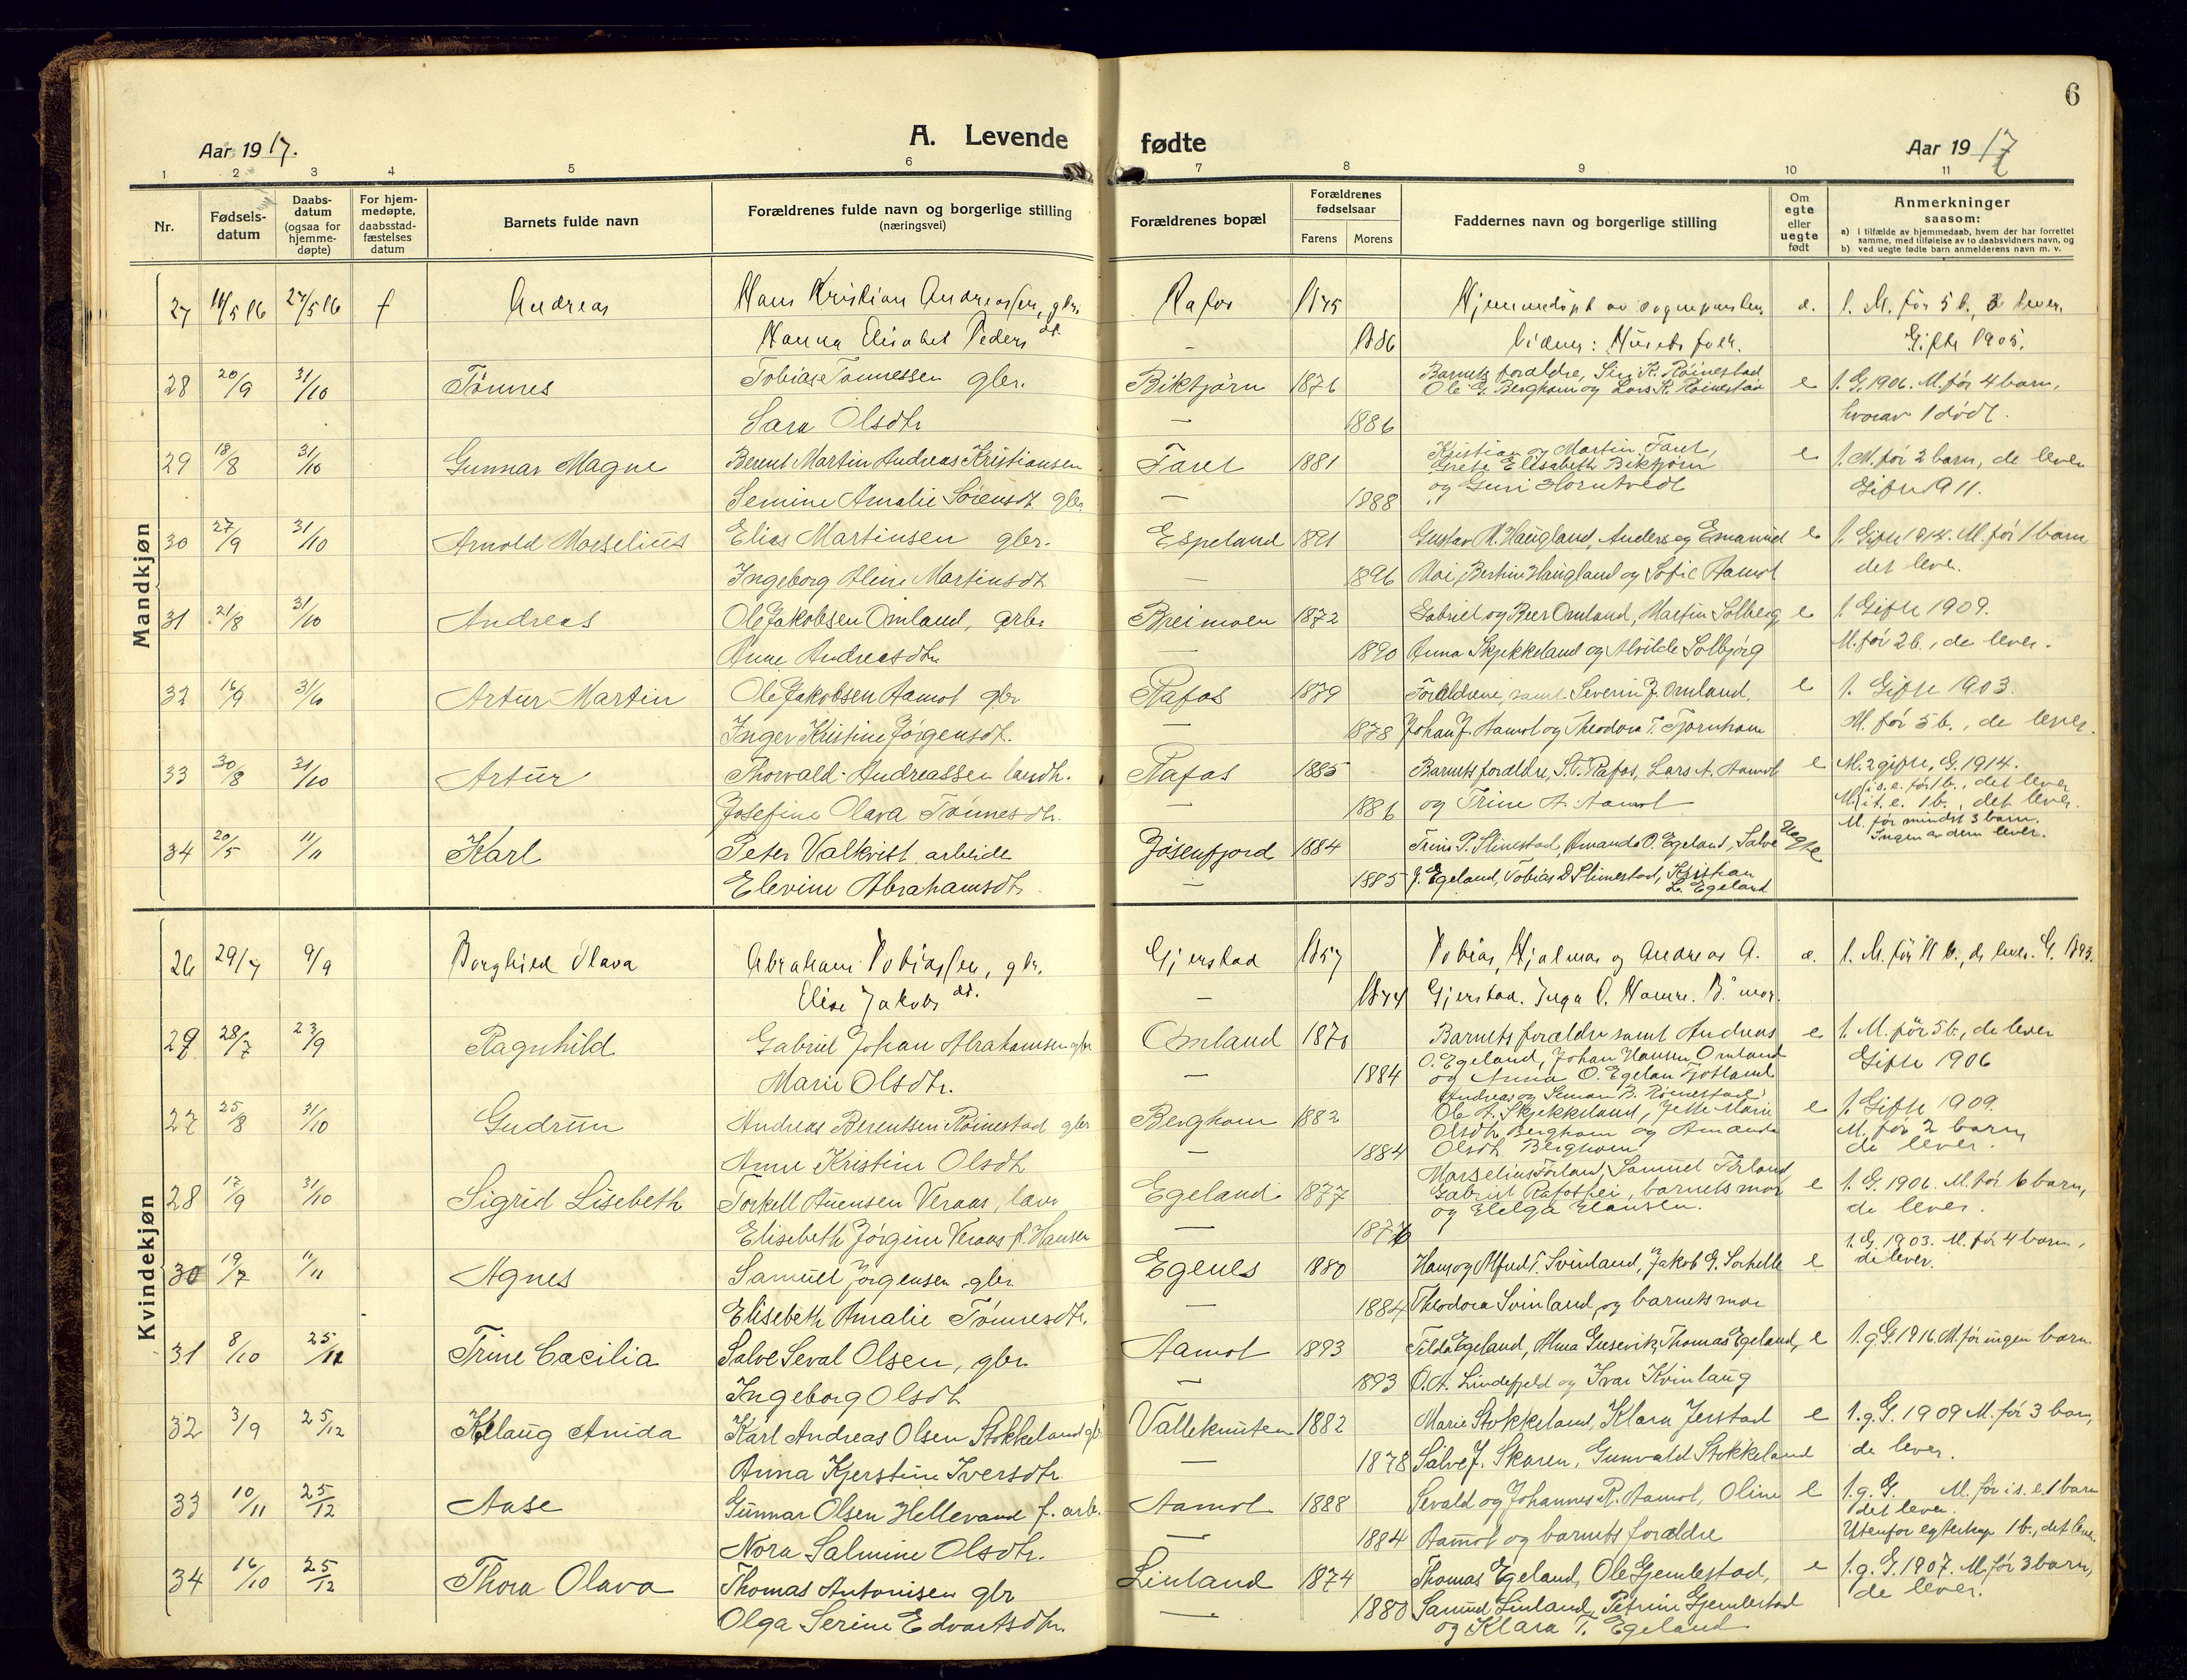 6
Aar 1917.
A. Levende
fødte
Aar 1917
1 2 3 4 5 6 7 8 9 10 11
Nr.
Fødsels-
datum
Daabs-
datum
(ogsaa for
hjemme-
døpte)
For hjem-
medøpte,
daabsstad-
fæstelses
datum
Barnets fulde navn
Forældrenes fulde navn og borgerlige stilling
(næringsvei)
Forældrenes bopæl
Forældrenes
fødselsaar
Farens Morens
Faddernes navn og borgerlige stilling
Om
egte
eller
uegte
født
Anmerkninger
saasom:
a) i tilfælde av hjemmedaab, hvem der har forrettet
samme, med tilføielse av to daabsvidners navn, og
b) ved uegte fødte barn anmelderens navn m. v.
Mandkjøn
27 27/5 16 f Andreas Hans Kristian Andreassen, gbr. Rafos 1875 Hjemmedøpt av sognepresten e. 1. M. før 5 b., lever.
Hanna Elisabet Pedersdt. — 1886 Vidner: Husets folk. Gifte 1905.
28 20/9 31/10 Tønnes Tobias Tønnessen gbr. Biktjørn 1876 Barnets forældre, Siri K. Røinestad
Ole G. Berghom og Lars K. Røinestad e 1. G. 1906. M. før 4 barn,
Sara Olsdtr — 1886 hvorav 1 dødt.
29 18/8 31/10 Gunnar Magne Berent Martin Andreas Kristiansen Faret 1881 Kristian og Martin Faret,
Grete Elisabeth Biktjørn e 1. M. før 2 barn, de lever
Semine Amalie Sørensdt gbr. — 1888 og Guri Horntvedt Gifte 1911.
30 27/9 31/10 Arnold Marselius Elias Martinsen gbr. Espeland 1891 Gustav M. Haugland, Anders og Emanuel e 1. Gifte 1914. M. før 1 barn
Ingeborg Aline Martinsdt — 1896 Moi, Bertine Haugland og Sofie Aamot det lever.
31 21/8 31/10 Andreas Ole Jakobsen Omland, arb. Breimoen 1872 Gabriel og Peer Omland, Martin Solberg e 1. Gifte 1909.
Anne Andreasdtr — 1890 Anna Skjekkeland og Alvilde Solbjørg M. før 2 b., de lever.
32 16/9 31/10 Artur Martin Ole Jakobsen Aamot gbr Rafos 1879 Forældrene, samt Severin J. Omland, e 1. Gifte 1903.
Inger Kristine Jørgensdt. — 1878 Johan J. Aamot og Theodora T. Tjørnhom M. før 5 b., de lever.
33 30/8 31/10 Artur Thorvald Andreassen landh. Rafos 1885 Barnets forældre, S. T. Rafos, Lars A. Aamot e M. 2 gifte, G. 1914.
M. i s. e. før 1 b., det lever
Josefine Olava Tønnesdtr. — 1886 og Trine A. Aamot i t. e. 1 b., det lever.
34 20/5 11/11 Karl Peter Valkvist, arbeide Jøsenfjord 1884 Trine P. Slimestad, Amanda O. Egeland, Salve Uegte M. før mindst 3 barn.
Ingen av dem lever.
Elevine Abrahamsdtr. — 1885 J. Egeland, Tobias D. Slimestad, Kristian
L. Egeland
Kvindekjøn
26 29/7 9/9 Borghild Olava Abraham Tobiassen, gbr. Gjerstad 1857 Tobias, Hjalmar og Andreas A. e. 1. M. før 11 b., de lever. G. 1893.
Elise Jakobsdt. — 1874 Gjerstad. Inga O. Hamre. B. mor.
29 28/7 23/9 Ragnhild Gabriel Johan Abrahamsen gbr Omland 1870 Barnets forældre samt Andreas e 1. M. før 5 b., de lever
O. Egeland, Johan Hansen Omland
Marie Olsdtr. — 1884 og Anna O. Egeland Fjotland Gifte 1906
27 25/8 31/10 Gudrun Andreas Berentsen Røinestad gbr Berghom 1882 Andreas og Simon B. Rønestad
Ole A. Skjekkeland, Jette Marie e 1. Gifte 1909.
Olsdtr Berghom og Amanda M. før 2 barn,
Anne Kristine Olsdt — 1884 Olsdt Berghom de lever.
28 17/9 31/10 Sigrid Lisebeth Torkell Auensen Veraas, lærer Egeland 1877 Marselius Førland, Samuel Førland
Gabriel Rafoshei, barnets mor e 1. G. 1906. M. før 6 barn,
og Helga Hansen. de lever.
Elisebeth Jørgine Veraas f. Hansen — 1876
30 19/7 11/11 Agnes Samuel Jørgensen gbr Egenes 1880 Hans og Alfred T. Svinland, Jakob G. Sorhelle e 1. G. 1903. M. før 4 barn,
de lever.
Elisebeth Amalie Tønnesdtr. — 1884 Theodora Svinland, og barnets mor
31 8/10 25/12 Trine Cæcilia Salve Seval Olsen, gbr. Aamot 1893 Tilda Egeland, Alma Gusevik, Thomas Egeland, e 1. g G. 1916. M. før ingen barn.
Ingeborg Olsdt — 1893 O. A. Lindefjeld og Ivar Kvinlaug
32 3/9 25/12 Aslaug Anida Karl Andreas Olsen Stokkeland gbr Valleknuten 1882 Marie Stokkeland, Klara Jerstad e 1. g. G. 1909 M. før 3 barn,
Anna Kjerstine Iversdtr. — 1878 Salve J. Skaren, Gunvald Stokkeland de lever.
33 10/11 25/12 Aase Gunnar Olsen Hellevand f. arb. Aamot 1888 Sevald og Johannes R. Aamot, Oline e 1. g. G. M. før i s. e. 1 barn
det lever.
Nora Salmine Olsdtr. — 1884 Aamot og barnets forældre Utenfor egteskap 1 b., det lever.
34 16/10 25/12 Thora Olava Thomas Antonisen gbr Linland 1874 Thomas Egeland, Ole Gjemlestad, e 1. g. G. 1907. M. før 3 barn,
Olga Serine Edvartsdtr. — 1880 Samuel Linland, Petrine Gjemlestad de lever.
og Klara T. Egeland